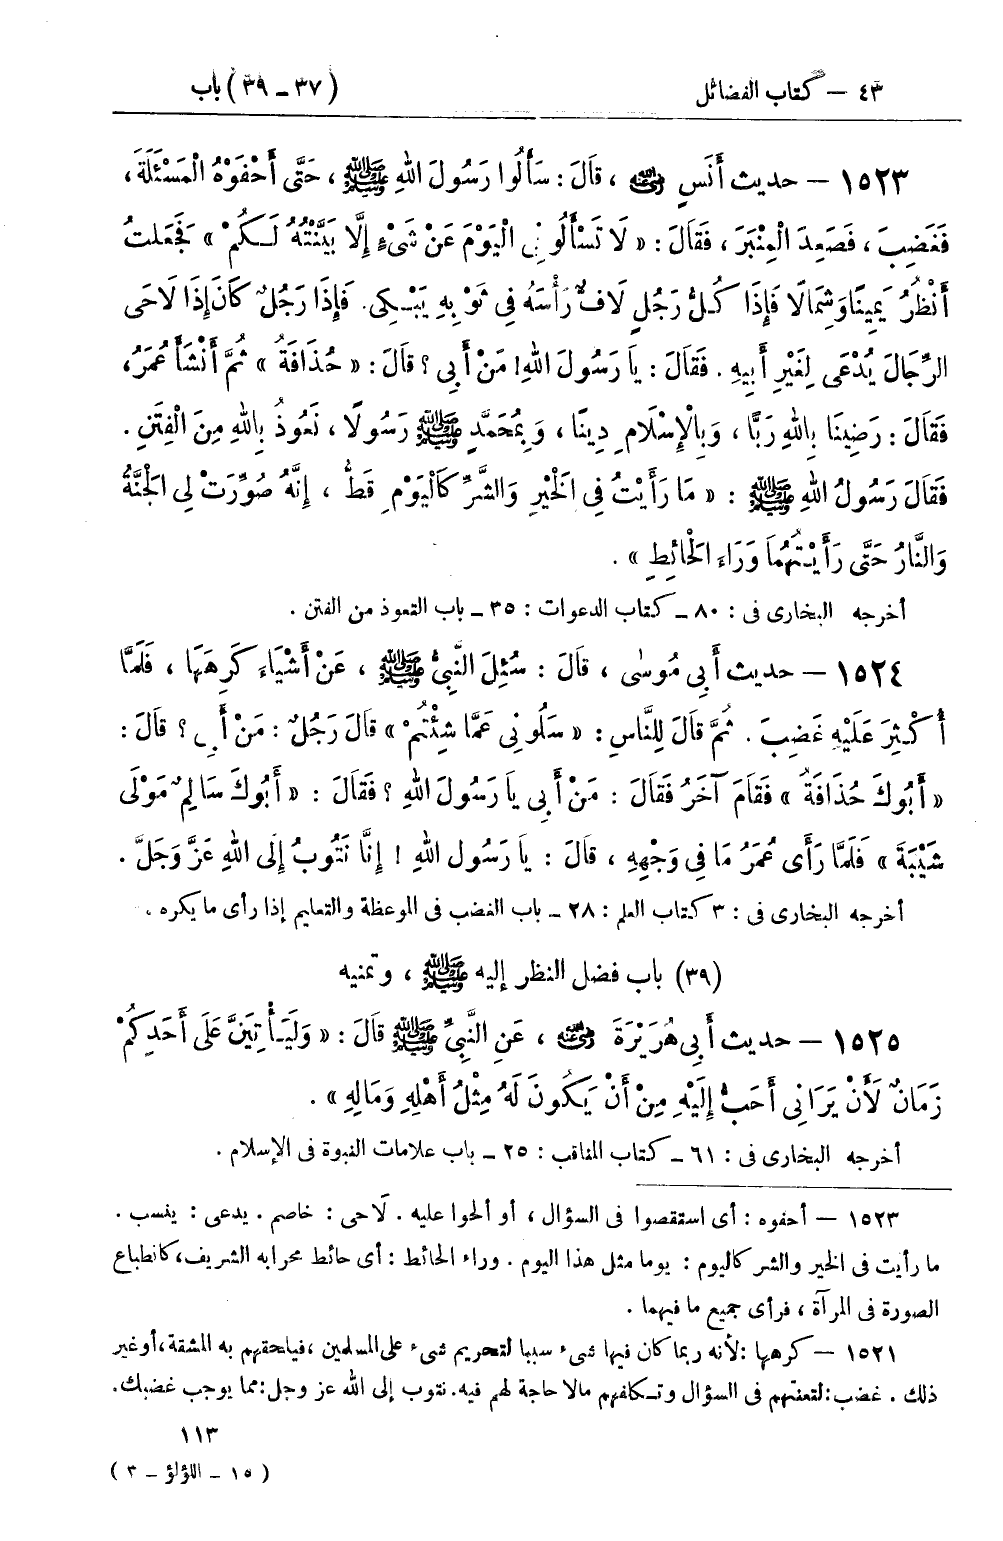 ٤٣ – كتاب الفضائل (٣٧ – ٣٩) باب
١٥٢٣ – حديث أَنَسٍ رضي الله عنه ، قَالَ : سَأَلُوا رَسُولَ اللهِ ﷺ ، حَتَّى أَحْفَوْهُ الْمَسْئَلَةَ ،
فَغَضِبَ ، فَصَعِدَ الْمِنْبَرَ ، فَقَالَ : « لَا تَسْأَلُونِي الْيَوْمَ عَنْ شَيْءٍ إِلَّا بَيَّنْتُهُ لَكُمْ » فَجَعَلْتُ
أَنْظُرُ يَمِينًا وَشِمَالًا فَإِذَا كُلُّ رَجُلٍ لَافٌّ رَأْسَهُ فِي ثَوْبِهِ يَبْكِي. فَإِذَا رَجُلٌ كَانَ إِذَا لَاحَى
الرِّجَالَ يُدْعَى لِغَيْرِ أَبِيهِ . فَقَالَ : يَا رَسُولَ اللهِ! مَنْ أَبِي ؟ قَالَ : « حُذَافَةُ » ثُمَّ أَنْشَأَ عُمَرُ ،
فَقَالَ : رَضِينَا بِاللهِ رَبًّا ، وَبِالْإِسْلَامِ دِينًا ، وَبِمُحَمَّدٍ ﷺ رَسُولًا ، نَعُوذُ بِاللهِ مِنَ الْفِتَنِ .
فَقَالَ رَسُولُ اللهِ ﷺ : « مَا رَأَيْتُ فِي الْخَيْرِ وَالشَّرِّ كَالْيَوْمِ قَطُّ ، إِنَّهُ صُوِّرَتْ لِي الْجَنَّةُ
وَالنَّارُ حَتَّى رَأَيْتُهُمَا وَرَاءَ الْحَائِطِ » .
أخرجه البخارى فى : ٨٠ – كتاب الدعوات : ٣٥ – باب التعوذ من الفتن .
١٥٢٤ – حديث أَبِي مُوسَى ، قَالَ : سُئِلَ النَّبِيُّ ﷺ ، عَنْ أَشْيَاءَ كَرِهَهَا ، فَلَمَّا
أُكْثِرَ عَلَيْهِ غَضِبَ . ثُمَّ قَالَ لِلنَّاسِ : « سَلُونِي عَمَّا شِئْتُمْ » قَالَ رَجُلٌ : مَنْ أَبِي ؟ قَالَ :
« أَبُوكَ حُذَافَةُ » فَقَامَ آخَرُ فَقَالَ : مَنْ أَبِي يَا رَسُولَ اللهِ ؟ فَقَالَ : « أَبُوكَ سَالِمٌ مَوْلَى
شَيْبَةَ » فَلَمَّا رَأَى عُمَرُ مَا فِي وَجْهِهِ ، قَالَ : يَا رَسُولَ اللهِ ! إِنَّا نَتُوبُ إِلَى اللهِ عَزَّ وَجَلَّ .
أخرجه البخارى فى : ٣ كتاب العلم : ٢٨ – باب الغضب فى الموعظة والتعليم إذا رأى ما يكره .
(٣٩) باب فضل النظر إليه ﷺ ، وتمنيه
١٥٢٥ – حديث أَبِي هُرَيْرَةَ رضي الله عنه ، عَنِ النَّبِيِّ ﷺ قَالَ : « وَلَيَأْتِيَنَّ عَلَى أَحَدِكُمْ
زَمَانٌ لَأَنْ يَرَانِي أَحَبُّ إِلَيْهِ مِنْ أَنْ يَكُونَ لَهُ مِثْلُ أَهْلِهِ وَمَالِهِ » .
أخرجه البخارى فى : ٦١ – كتاب المناقب : ٢٥ – باب علامات النبوة فى الإسلام .
١٥٢٣ – أحفوه : أى استقصوا فى السؤال ، أو ألحوا عليه . لَاحى : خاصم . يدعى : ينسب .
ما رأيت فى الخير والشر كاليوم : يوما مثل هذا اليوم . وراء الحائط : أى حائط محرابه الشريف، كانطباع
الصورة فى المرآة ، فرأى جميع ما فيهما .
١٥٢١ – كرهها : لأنه ربما كان فيها شىء سببا لتحريم شىء على المسلمين ، فيلحقهم به المشقة، أو غير
ذلك . غضب : لتعنتهم فى السؤال وتكلفهم مالا حاجة لهم فيه. نتوب إلى الله عز وجل : مما يوجب غضبك.
١١٣
( ١٥ – اللؤلؤ – ٣ )